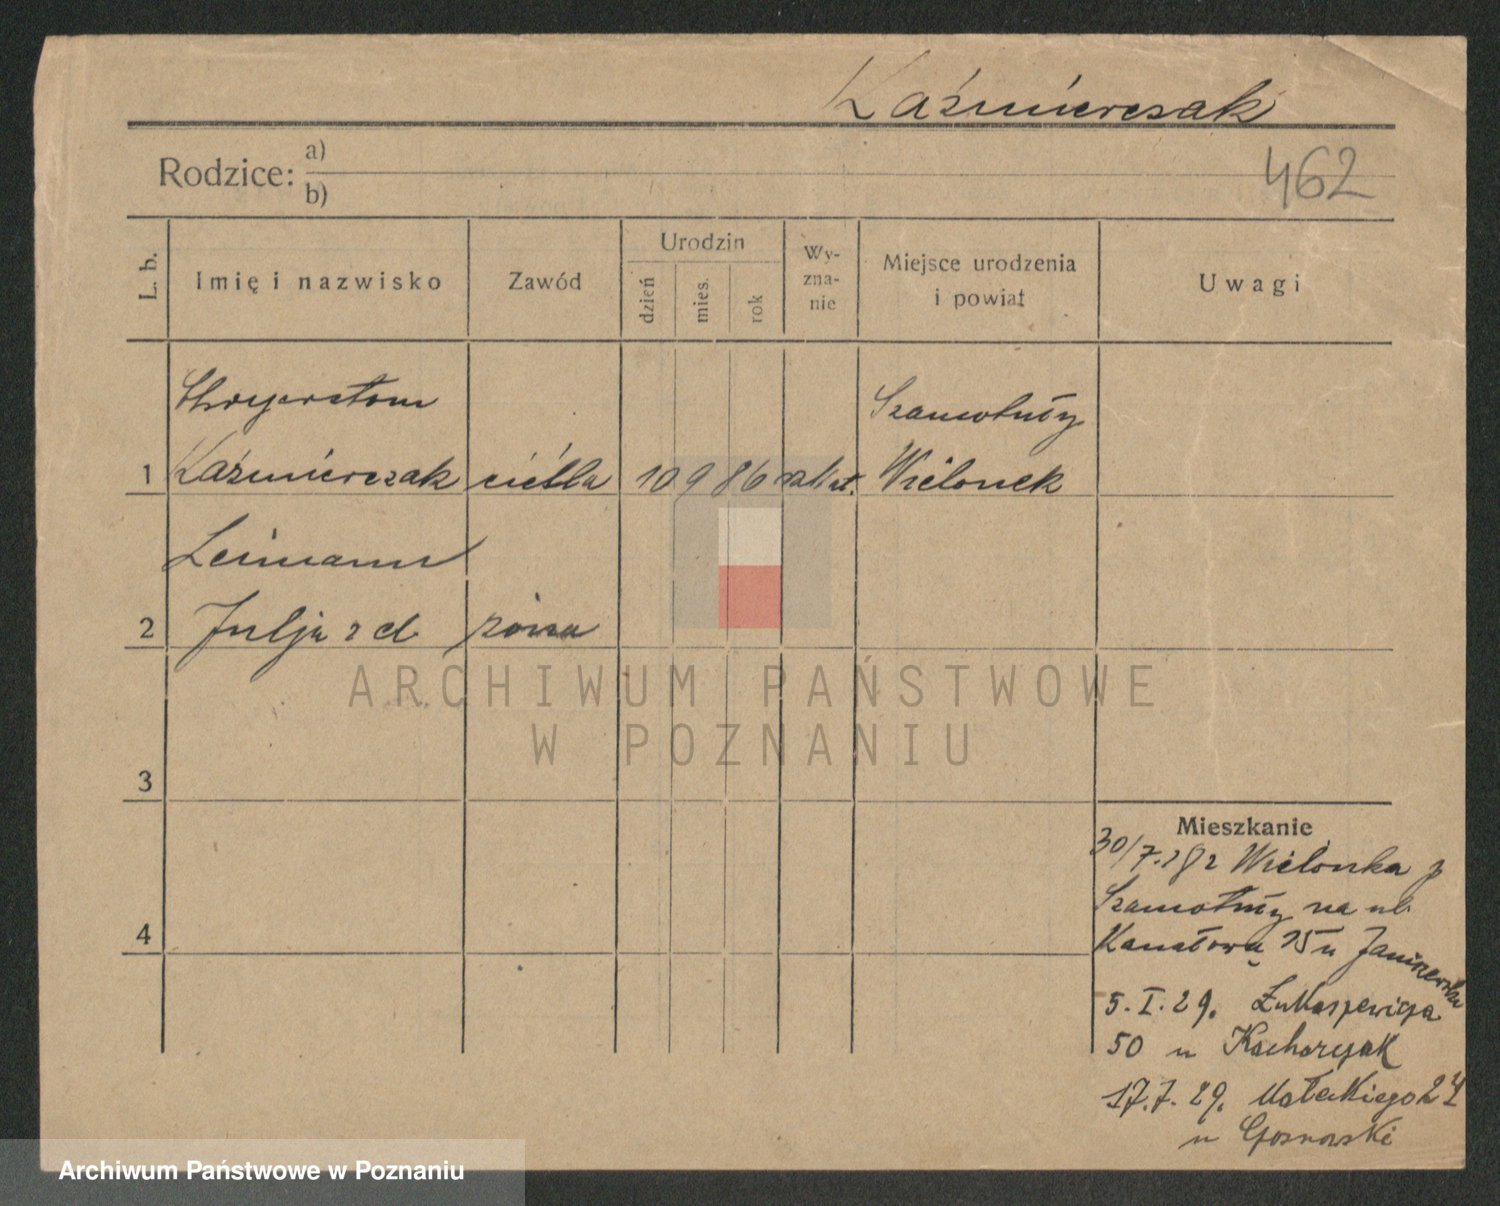 Kaźmierczak
Rodzice: a)
b)
462
L. b.
Imię i nazwisko
Zawód
Urodzin
dzień
mies.
rok
Wy-
zna-
nie
Miejsce urodzenia
i powiat
Uwagi
Chryzostom
Szamotuły
1 Kaźmierczak cieśla 10 9 86 rzkat. Wielonek
Leimann
2 Julja z d żona
3
4
Mieszkanie
30/7.28 z Wielonka p
Szamotuły na ul.
Kanałową 15 u Janiszewska
5. I. 29. Łukaszewicza
50 u Kacharczak
17.7.29. Małeckiego 24
u
ARCHIWUM PAŃSTWOWE
W POZNANIU
Archiwum Państwowe w Poznaniu